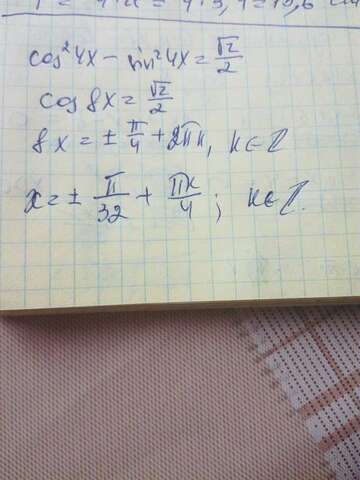 cos²4x - sin²4x = √2/2
cos 8x = √2/2
8x = ± π/4 + 2πk, k∈Z
x = ± π/32 + πk/4 ; k∈Z.